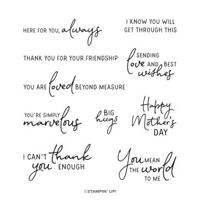 HERE FOR YOU always
I KNOW YOU WILL
GET THROUGH THIS
THANK YOU FOR YOUR FRIENDSHIP
SENDING
love AND BEST
wishes
YOU ARE loved BEYOND MEASURE
YOU'RE SIMPLY
marvelous
BIG
hugs
Happy
Mother's
DAY
I CAN'T thank
YOU ENOUGH
You MEAN
THE world
TO ME
© STAMPIN' UP!